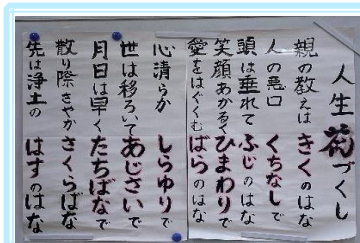 人生花づくし
親の教えは きくのはな
人の悪口 くちなしで
頭は垂れて ふじのはな
笑顔あかるく ひまわりで
愛をはぐくむ ばらのはな
心清らか しらゆりで
世は移ろいて あじさいで
月日は早く たちばなで
散り際さやか さくらばな
先は浄土の はすのはな